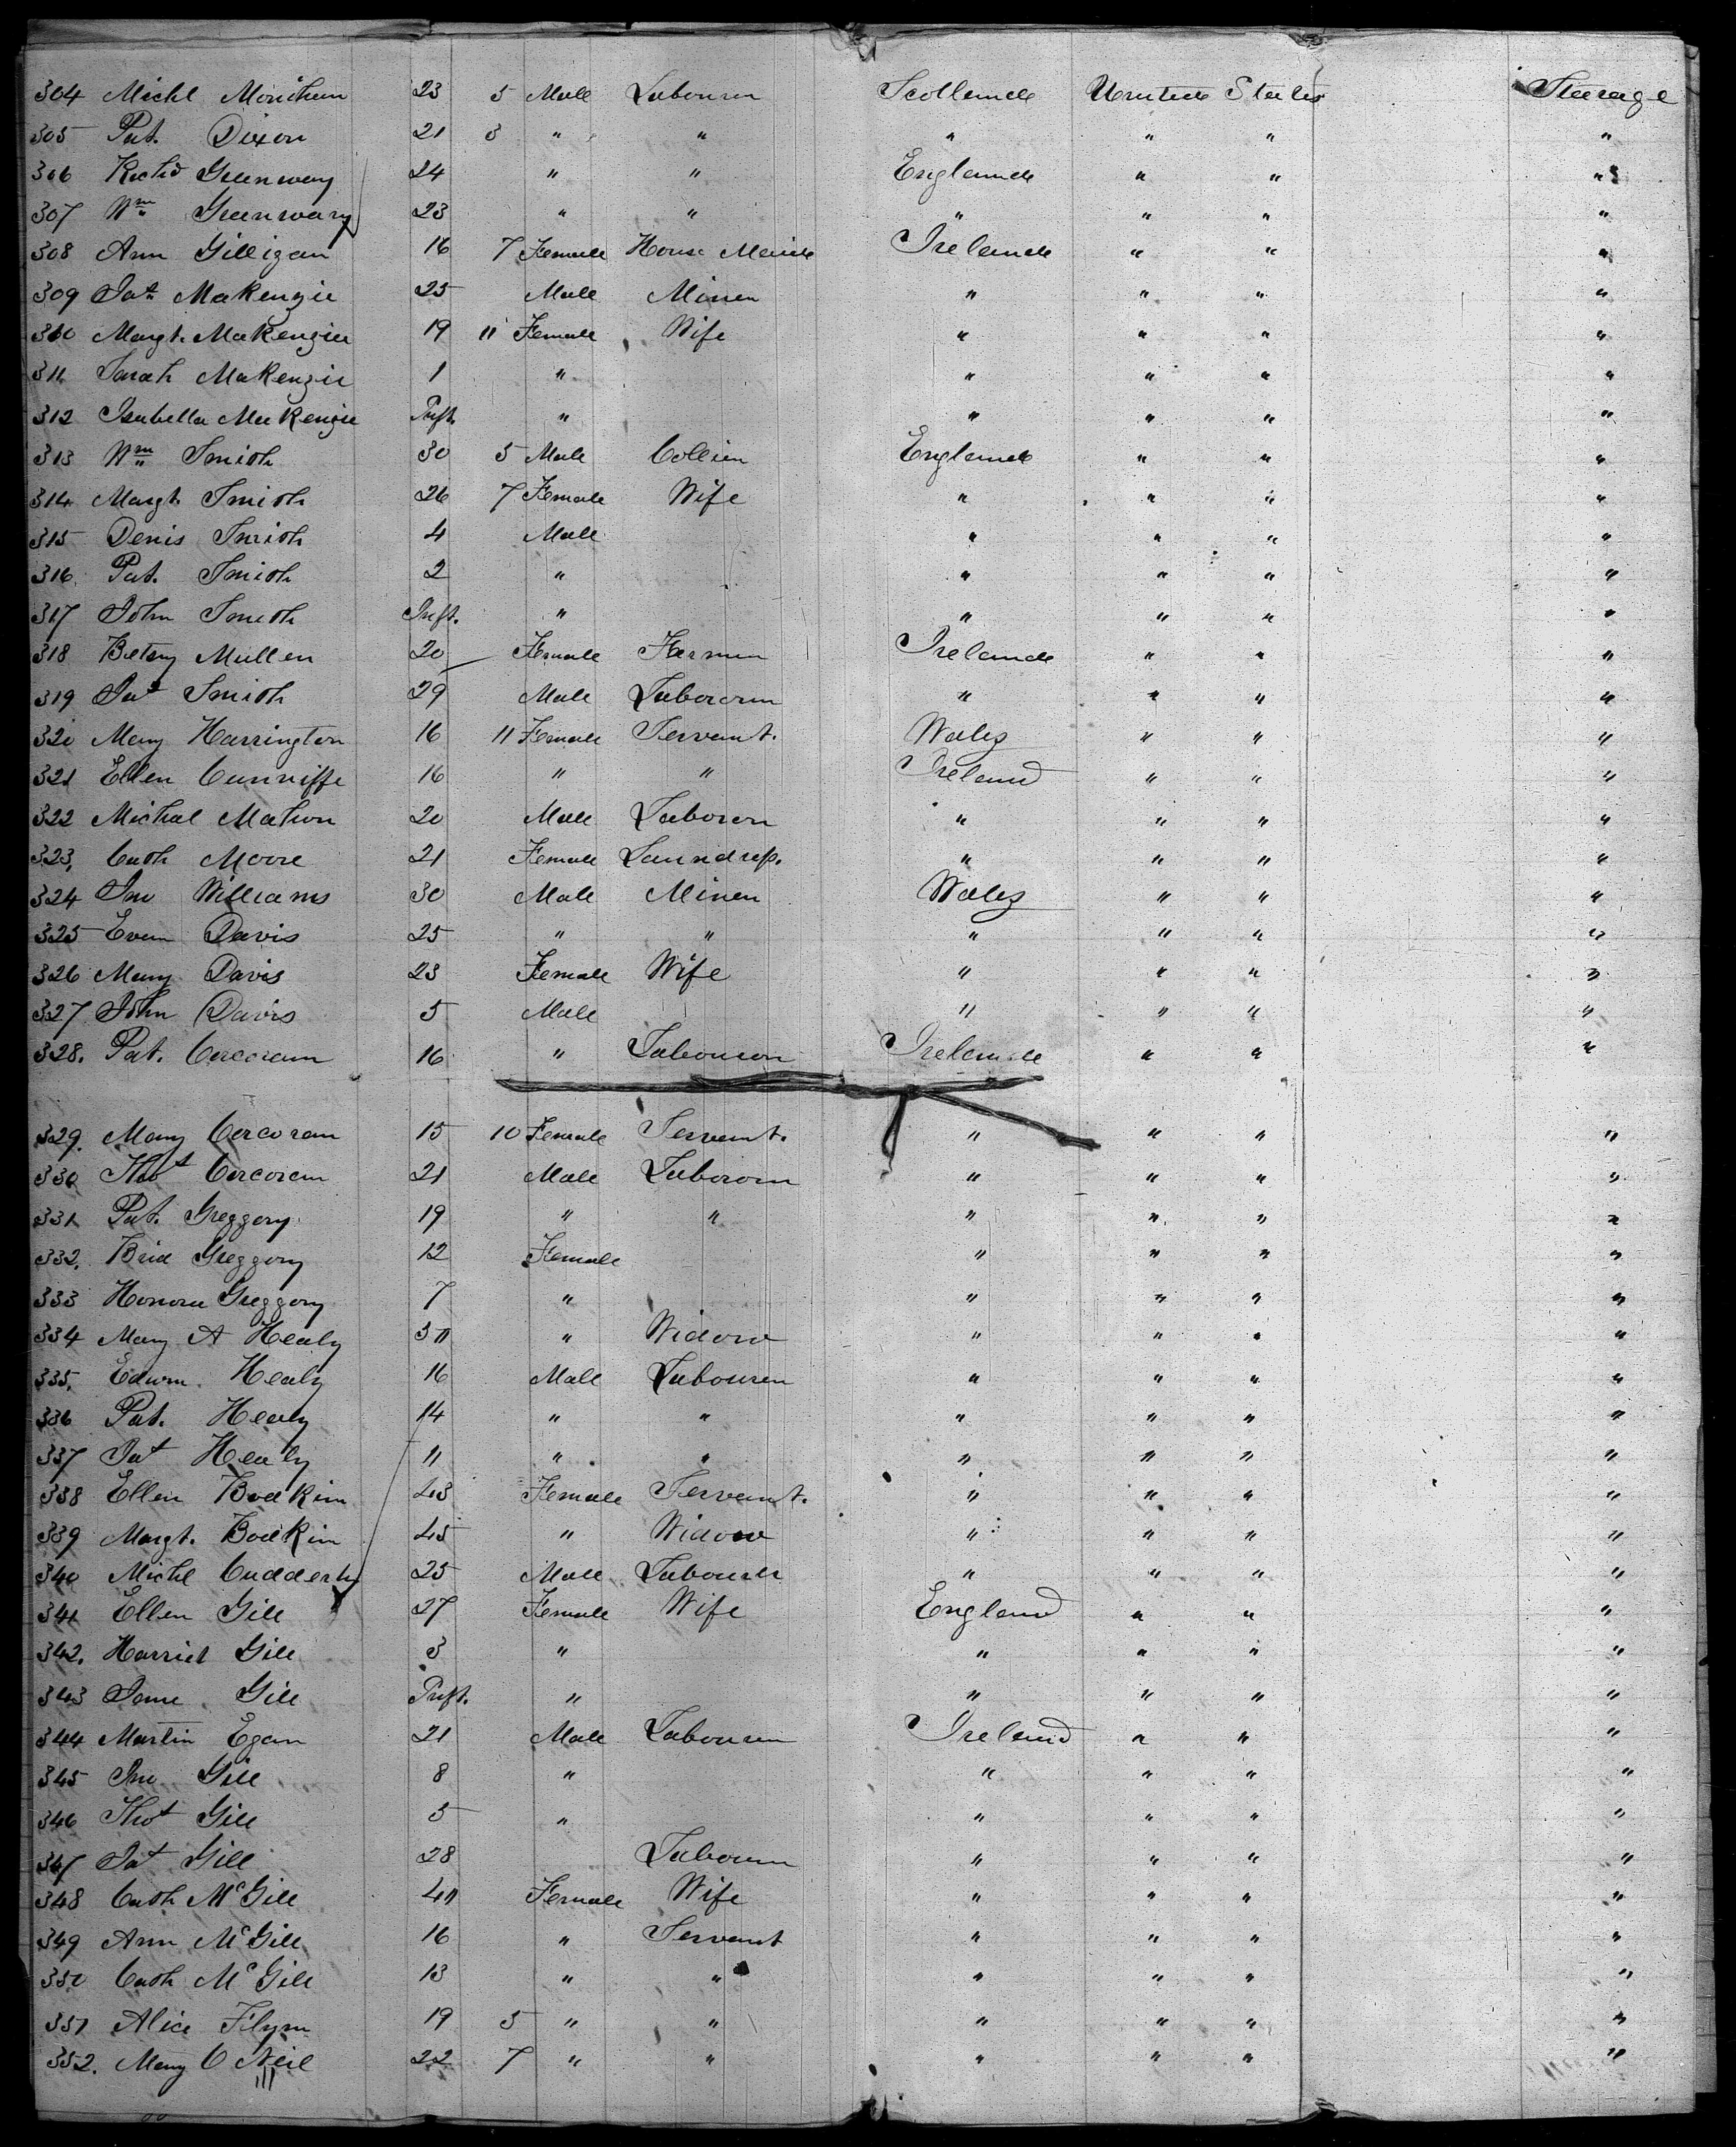 304 Michl Monihun 23 5 Male Labourer Scotland United States Steerage
305 Pat. Dixon 21 3 " " " " " "
306 Richd Greenway 24 " " England " " "
307 Wm Greenway 23 " " " " " "
308 Ann Gilligan 16 7 Female House Maid Ireland " " "
309 Jas MaKenzie 25 Male Miner " " " "
310 Margt. MaKenzie 19 11 Female Wife " " " "
311 Sarah MaKenzie 1 " " " " "
312 Isabella MaKenzie Inft. " " " " "
313 Wm Smith 30 5 Male Collier England " " "
314 Margt. Smith 26 7 Female Wife " " " "
315 Denis Smith 4 Male " " " "
316 Pat. Smith 2 " " " " "
317 John Smith Inft. " " " " "
318 Betsy Mullen 20 Female Farmer Ireland " " "
319 Jas Smith 29 Male Laborer " " " "
320 Mary Harrington 16 11 Female Servant. Wales " " "
321 Ellen Cunniffe 16 " " Ireland " " "
322 Michal Mahon 20 Male Laborer " " " "
323, Cath Moore 21 Female Laundress. " " " "
324 Jno Williams 30 Male Miner Wales " " "
325 Evan Davis 25 " " " " " "
326 Mary Davis 23 Female Wife " " " "
327 John Davis 5 Male " " " "
328. Pat. Corcoran 16 " Labourer Ireland " " "
329. Mary Corcoran 15 10 Female Servant. " " " "
330 Thos Corcoran 21 Male Laborer " " " "
331 Pat. Greggory 19 " " " " " "
332. Brid Greggory 12 Female " " " "
333 Honora Greggory 7 " " " " "
334 Mary A Healy 30 " Widow " " " "
335. Edwin Healy 16 Male Labourer " " " "
336 Pat. Healy 14 " " " " " "
337 Jas Healy 11 " " " " " "
338 Ellen Bodkin 23 Female Servant. " " " "
339 Margt. Bodkin 45 " Widow " " " "
340 Michl Cudderhy 25 Male Labourer " " " "
341 Ellen Gill 27 Female Wife England " " "
342. Harriet Gill 3 " " " " "
343 Jane Gill Inft. " " " " "
344 Martin Egan 21 Male Labourer Ireland " " "
345 Jno Gill 8 " " " " "
346 Thos Gill 5 " " " " "
347 Jas Gill 28 Labourer " " " "
348 Cath McGill 40 Female Wife " " " "
349 Ann McGill 16 " Servant " " " "
350 Cath McGill 13 " " " " " "
351 Alice Flynn 19 5 " " " " " "
352. Mary O Neil 22 7 " " " " " "